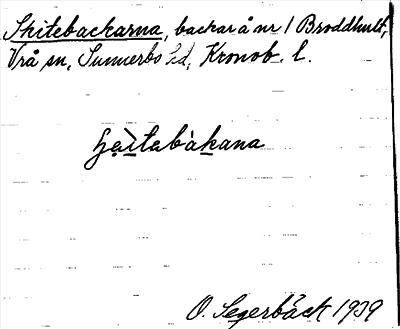 Skitebackarna, backar å nr 1 Broddhult,
Vrå sn, Sunnerbo hd, Kronob. l.
ʃa̱ìtabàka̱na
O. Segerbäck 1939